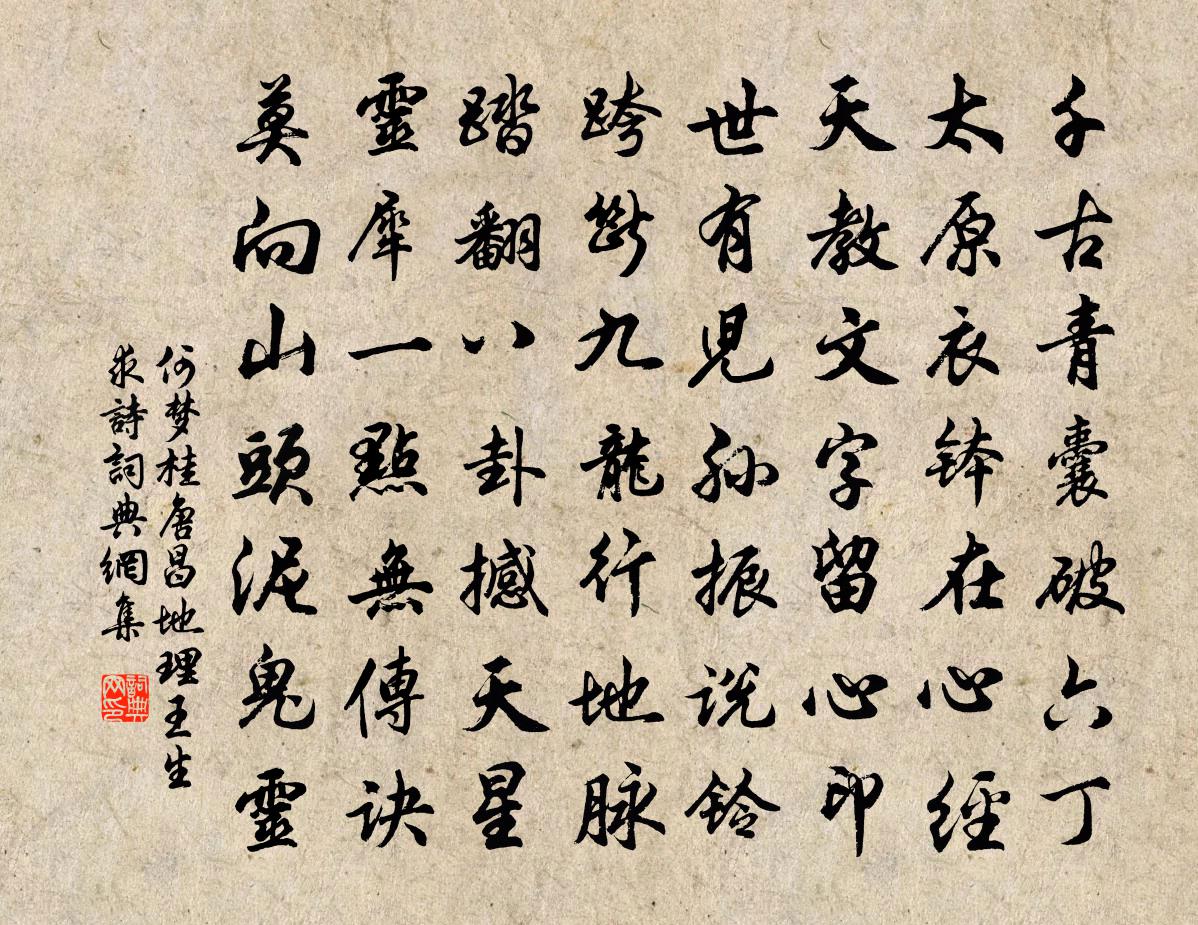 千古青囊破六丁
太原衣钵在心經
天教文字留心印
世有兒孫振説鈴
跨斷九龍行地脉
踏翻八卦撼天星
靈犀一點無傳訣
莫向山頭泥鬼靈
何梦桂唐昌地理王生
求詩詞典網集
詞典
网印